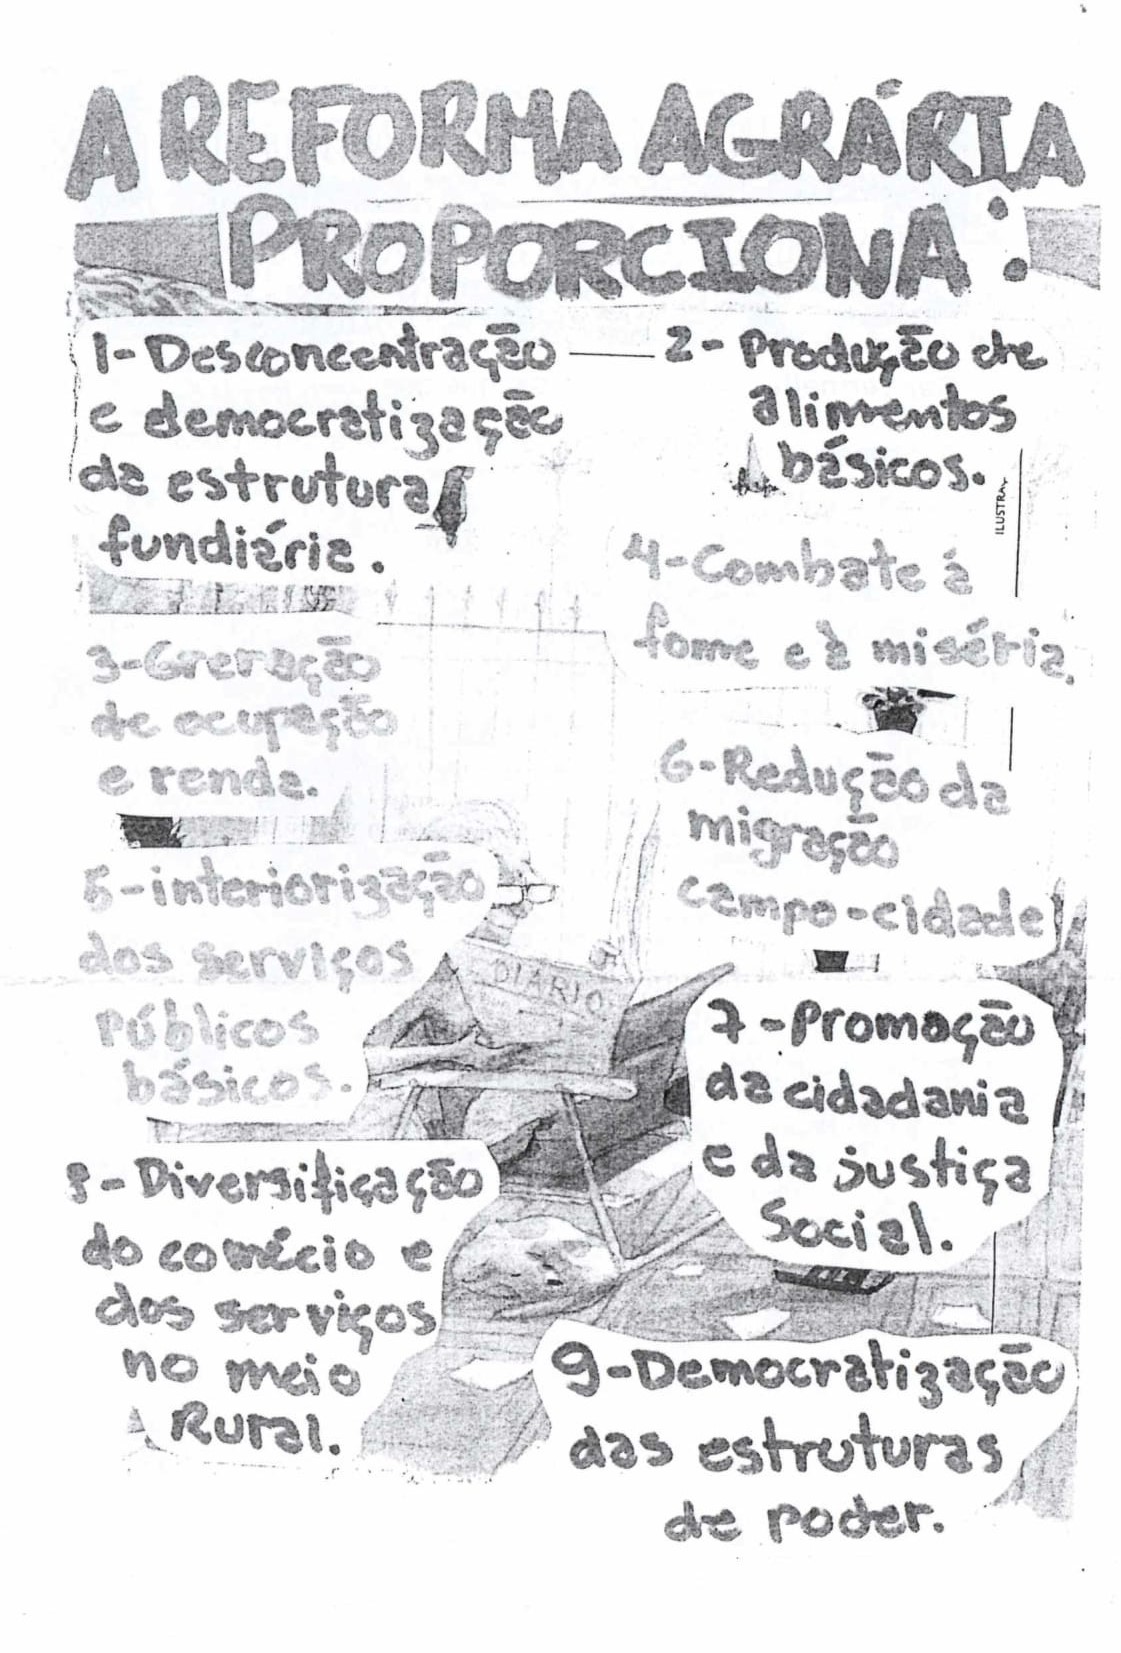 A REFORMA AGRÁRIA
PROPORCIONA:
1-Desconcentração
e democratização
da estrutura
fundiária.
2- Produção de
alimentos
básicos.
ILUSTRA
3-Geração
de ocupação
e renda.
4-Combate á
fome e à miséria.
5-interiorização
dos serviços
Públicos
básicos.
6-Redução da
migração
campo-cidade
DIÁRIO
7-Promoção
da cidadania
e da justiça
Social.
8-Diversificação
do comécio e
dos serviços
no meio
Rural.
9-Democratização
das estruturas
de poder.